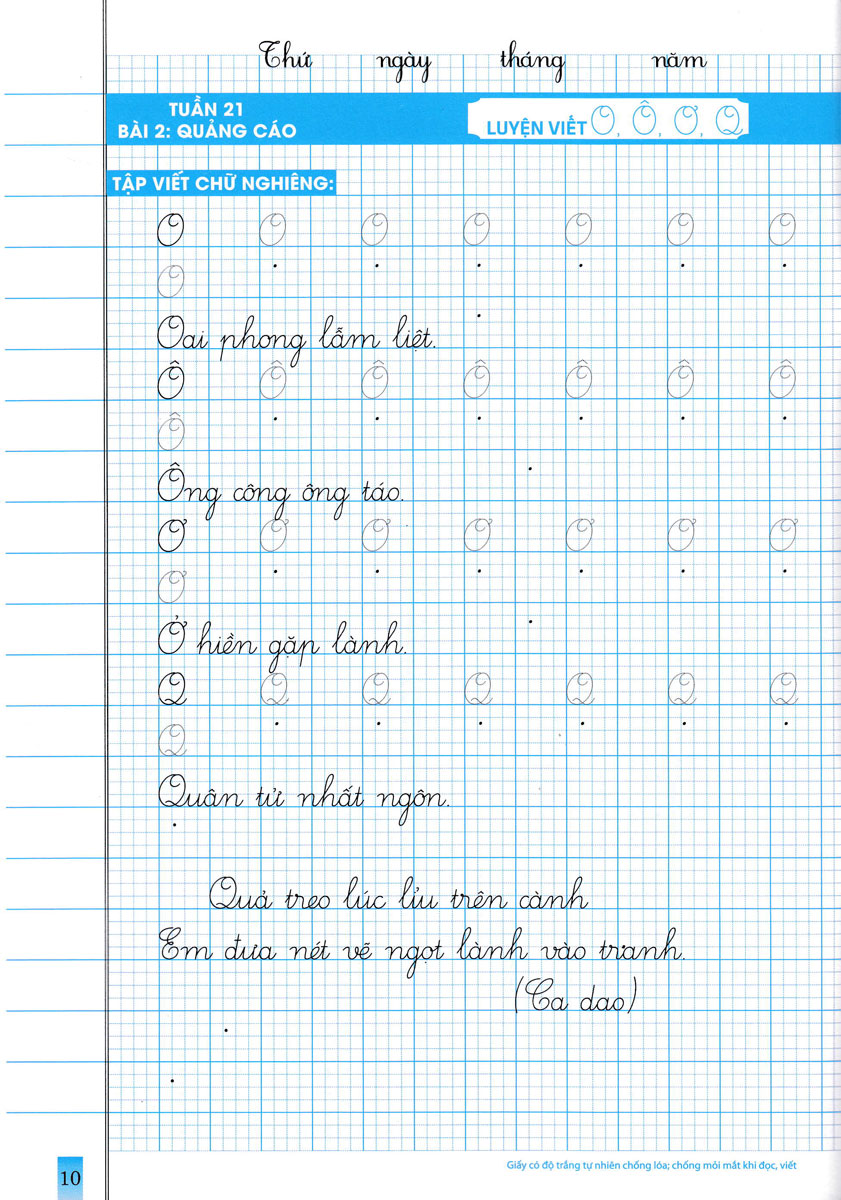 Thứ ngày tháng năm
TUẦN 21
BÀI 2: QUẢNG CÁO
LUYỆN VIẾT O, Ô, Ơ, Q
TẬP VIẾT CHỮ NGHIÊNG:
O O O O O O O
O
Oai phong lẫm liệt.
Ô Ô Ô Ô Ô Ô Ô
Ô
Ông công ông táo.
Ơ Ơ Ơ Ơ Ơ Ơ Ơ
Ơ
Ở hiền gặp lành.
Q Q Q Q Q Q Q
Q
Quân tử nhất ngôn.
Quả treo lúc lỉu trên cành
Em đưa nét vẽ ngọt lành vào tranh.
(Ca dao)
10
Giấy có độ trắng tự nhiên chống lóa; chống mỏi mắt khi đọc, viết